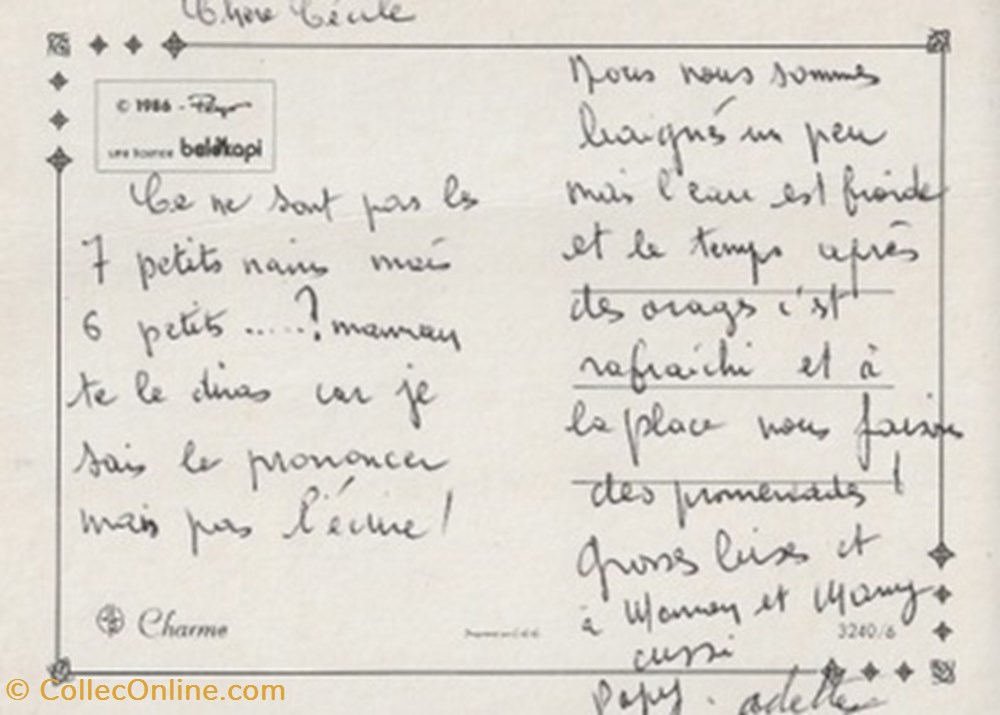 Chère Cécile
© 1986 - Peyo
une licence belokapi
Ce ne sont pas les
7 petits nains mais
6 petits .....? maman
te le diras car je
sais le prononcer
mais pas l'écrire !
Charme
Nous nous sommes
baignés un peu
mais l'eau est froide
et le temps après
des orages c'est
rafraichi et à
la place nous faisons
des promenades !
Grosses bises et
à Maman et Mamy
aussi
3240/6
Papy . Odette
© CollecOnline.com